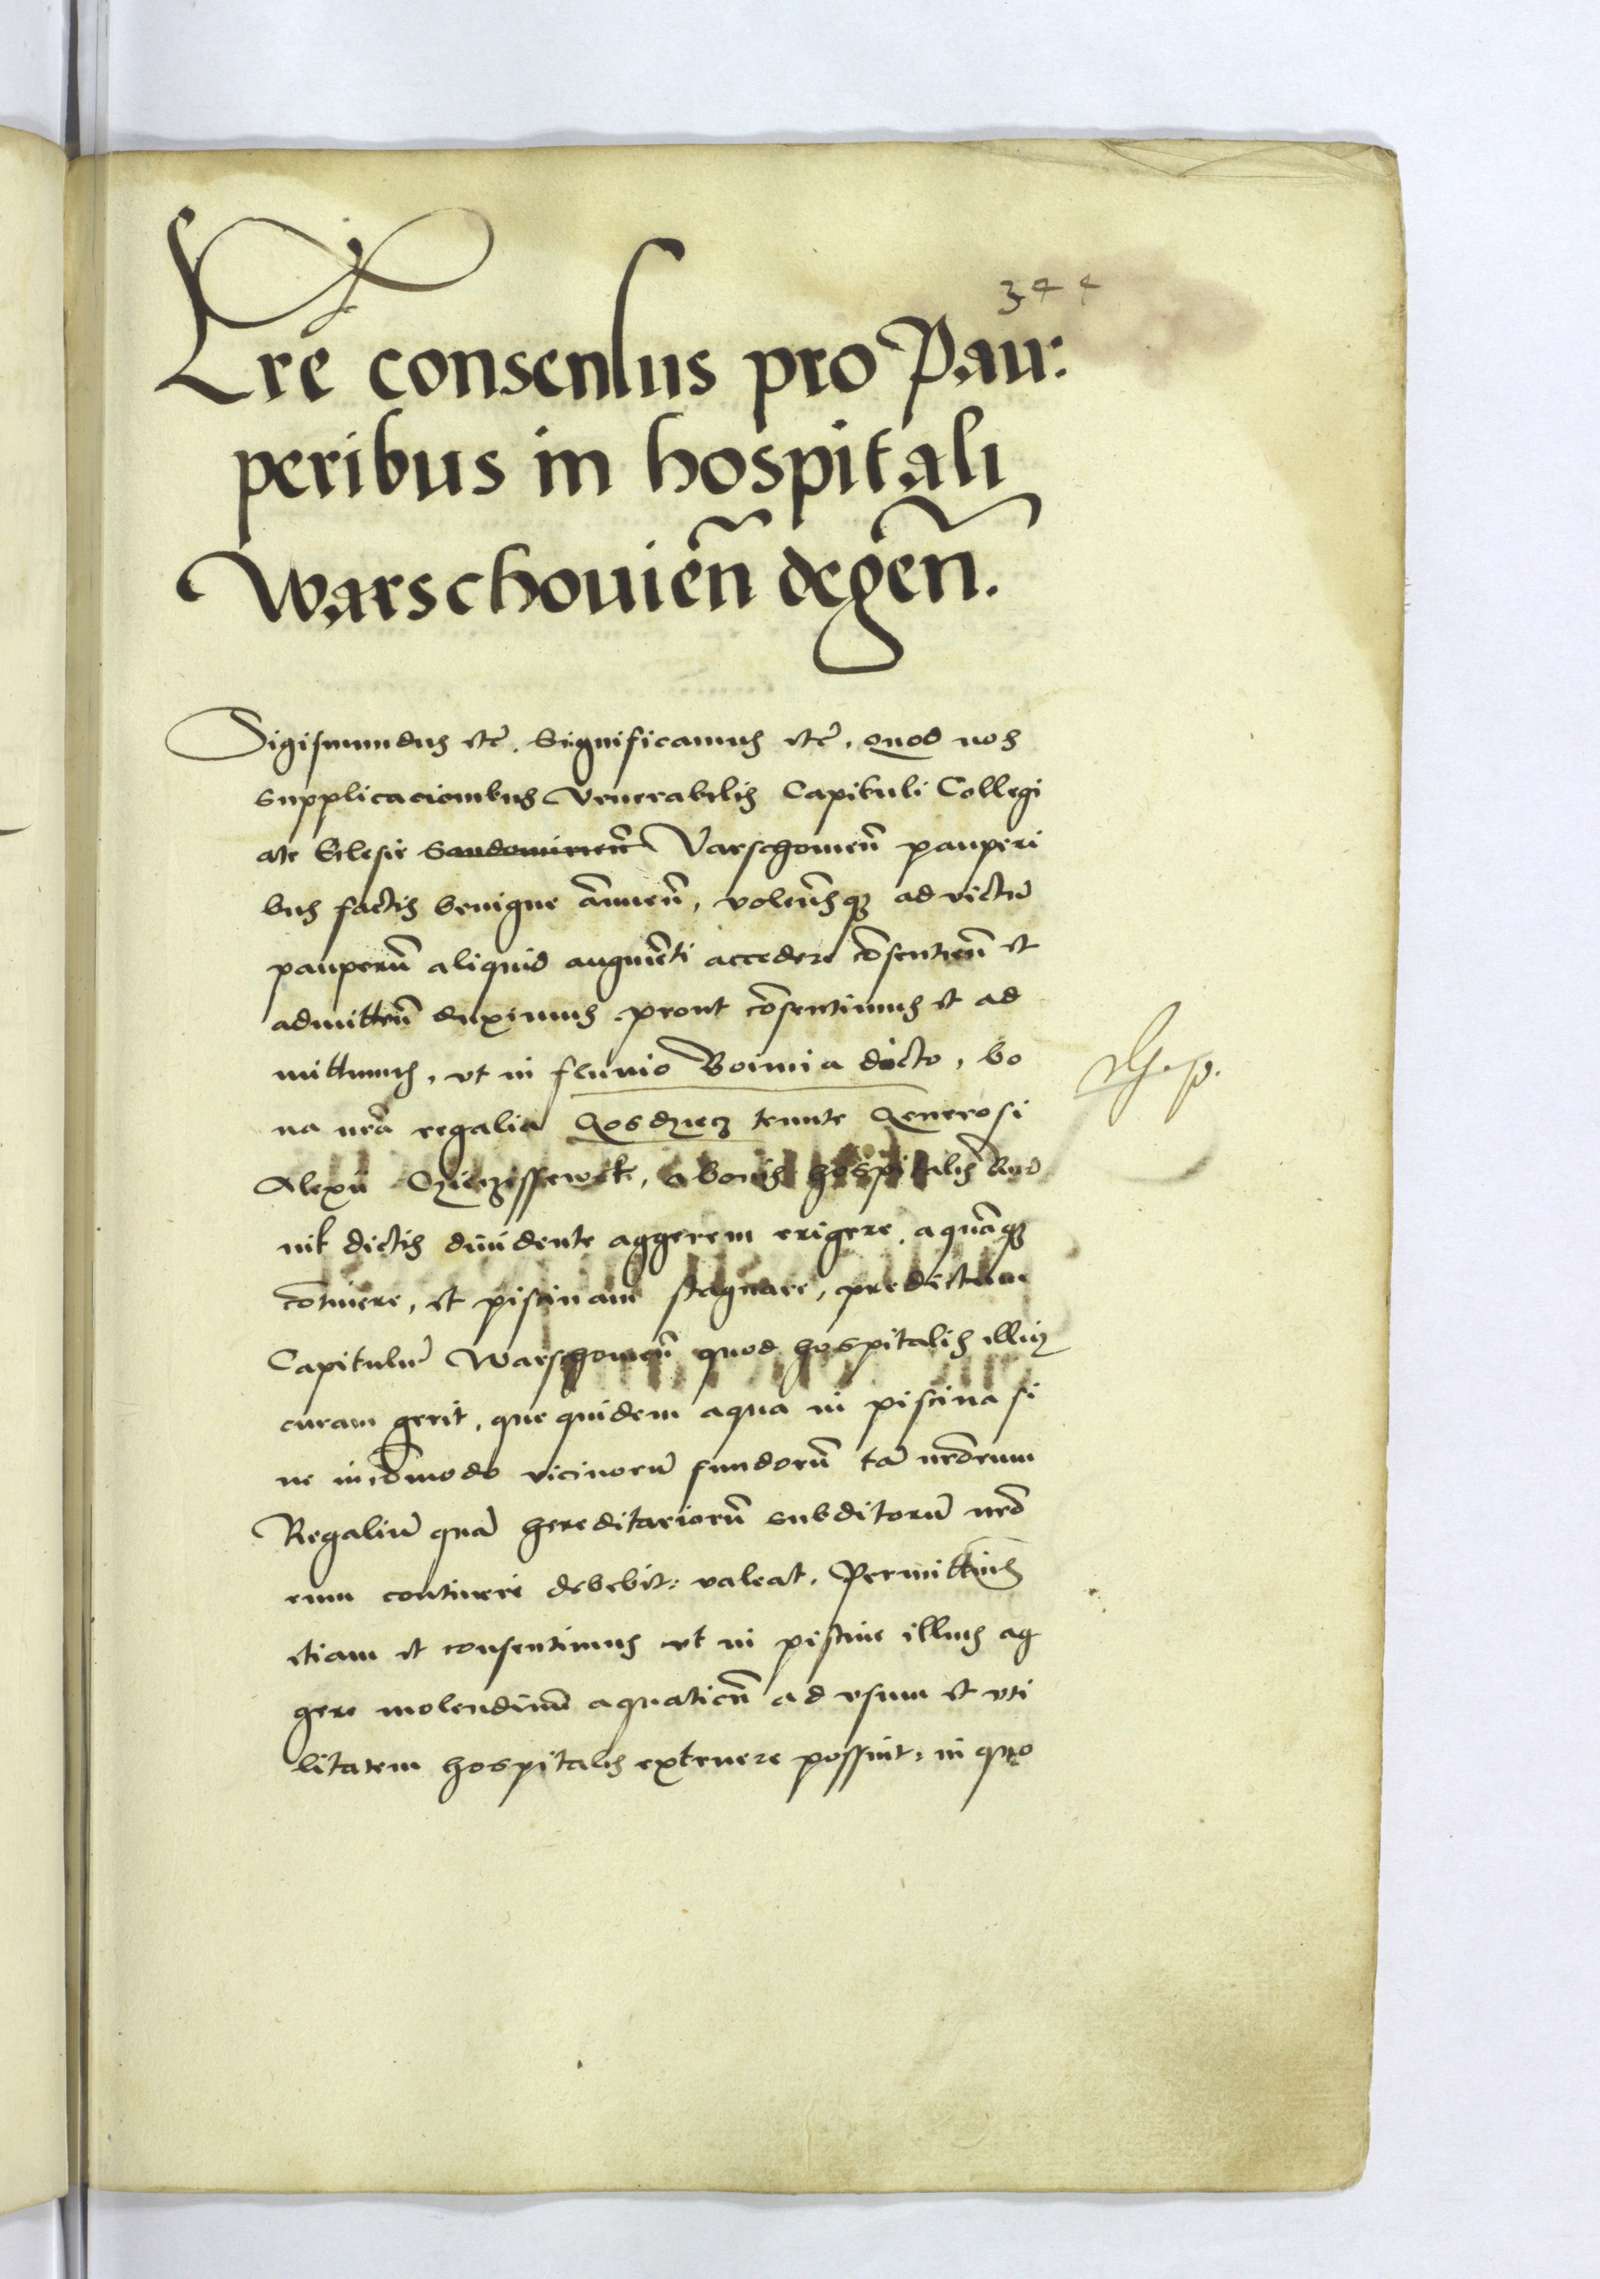 344
Lrẽ consensus pro Pau:
peribus in hospitali
Warschouieñ degeñ.
Sigismundus etc̃. Significamus etc̃. quod nos
supplicacionibus Venerabilis Capituli Collegi
ate Eclesie Sandomirieñ Varschouieñ pauperi
bus factis benigne ãnnueñ, volentẽsque ad victũ
pauperũ aliquid augmẽti accedere cõsentieñ et
admitteñ duximus prout cõsentimus et ad
mittimus, vt in fluuio Bounia dicto, bo
na nrã regalia Gosdziecz tenute Generosi
Alexñ, a bonis hospitalis
dictis diuidente aggerem erigere, aquãque
cõtinere, et piscinam stagnare, predictum
Capitulũ Warschouieñ quod hospitalis illius
curam gerit, que quidem aqua in piscina si
ne incõmodo vicinorũ fundorũ tã nrõrum
Regaliũ quã hereditariorũ subditorũ nrõ
rum contineri debebit: valeat. Permittimus
etiam et consentimus vt in piscine illius ag
gere molendinũ aquaticũ ad vsum et vti
litatem hospitalis extruere possint: in quo